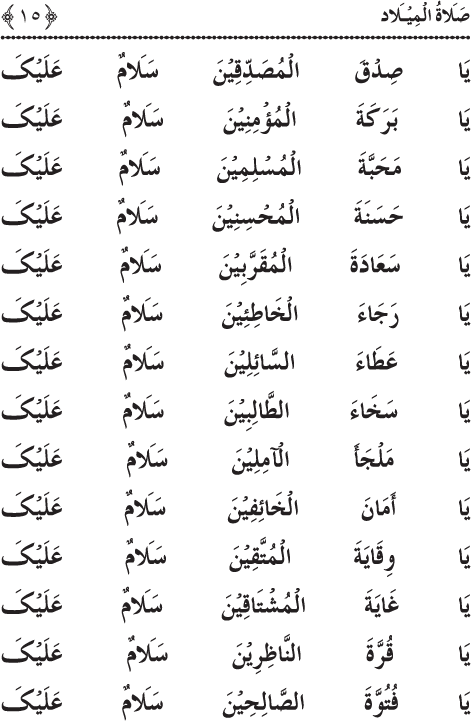 صَلَاةُ الْمِيْلَاد ﴿١٥﴾
يَا صِدْقَ الْمُصَدِّقِيْنَ سَلَامٌ عَلَيْکَ
يَا بَرَكَةَ الْمُؤْمِنِيْنَ سَلَامٌ عَلَيْکَ
يَا مَحَبَّةَ الْمُسْلِمِيْنَ سَلَامٌ عَلَيْکَ
يَا حَسَنَةَ الْمُحْسِنِيْنَ سَلَامٌ عَلَيْکَ
يَا سَعَادَةَ الْمُقَرَّبِيْنَ سَلَامٌ عَلَيْکَ
يَا رَجَاءَ الْخَاطِئِيْنَ سَلَامٌ عَلَيْکَ
يَا عَطَاءَ السَّائِلِيْنَ سَلَامٌ عَلَيْکَ
يَا سَخَاءَ الطَّالِبِيْنَ سَلَامٌ عَلَيْکَ
يَا مَلْجَأَ الْآمِلِيْنَ سَلَامٌ عَلَيْکَ
يَا أَمَانَ الْخَائِفِيْنَ سَلَامٌ عَلَيْکَ
يَا وِقَايَةَ الْمُتَّقِيْنَ سَلَامٌ عَلَيْکَ
يَا غَايَةَ الْمُشْتَاقِيْنَ سَلَامٌ عَلَيْکَ
يَا قُرَّةَ النَّاظِرِيْنَ سَلَامٌ عَلَيْکَ
يَا فُتُوَّةَ الصَّالِحِيْنَ سَلَامٌ عَلَيْکَ